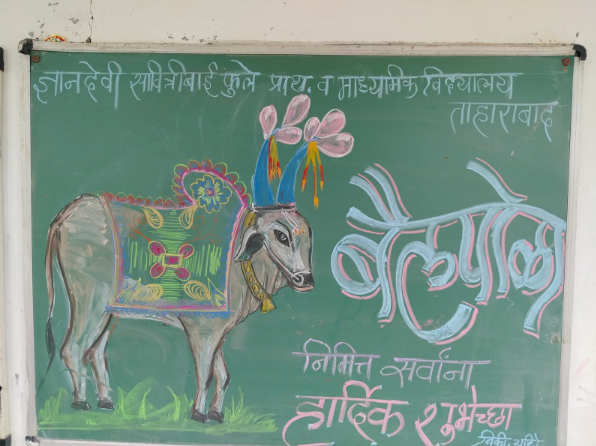 ज्ञानदेवी सावित्रीबाई फुले प्राथ. व माध्यमिक विद्यालय
ताहाराबाद
बैलपोळा
निमित्त सर्वांना
हार्दिक शुभेच्छा